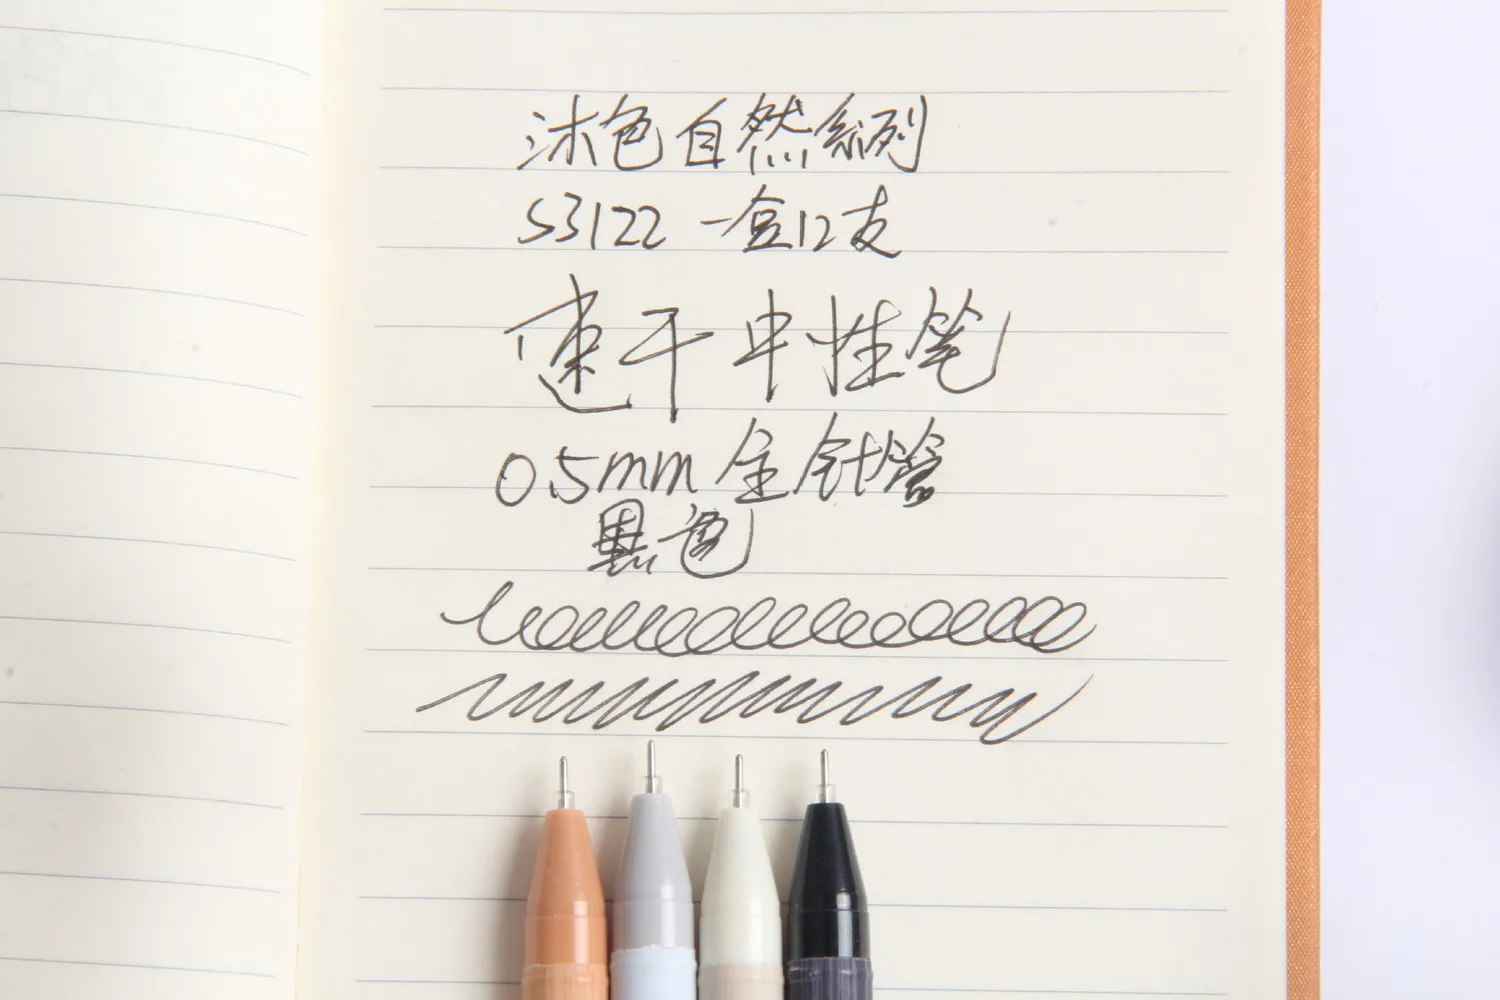 沐色自然系列
S3122 一盒12支
速干中性笔
0.5mm 全针管
黑色